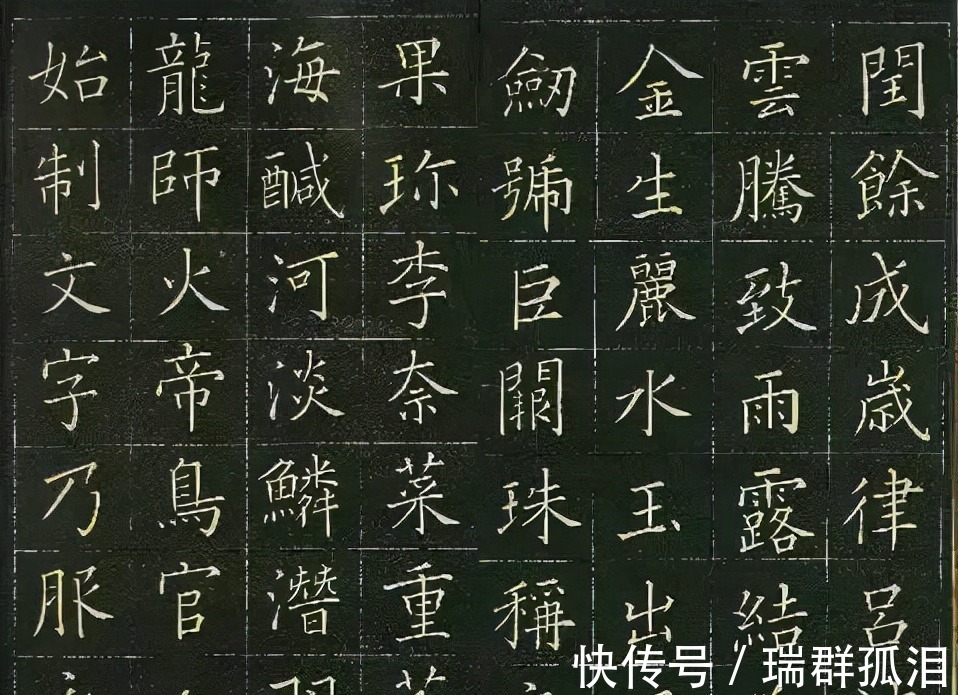 閏餘成歲律呂
雲騰致雨露結
金生麗水玉出
劒號巨闕珠稱
果珍李柰菜重
海鹹河淡鱗潛
龍師火帝鳥官
始制文字乃服
快传号 / 瑞群孤泪